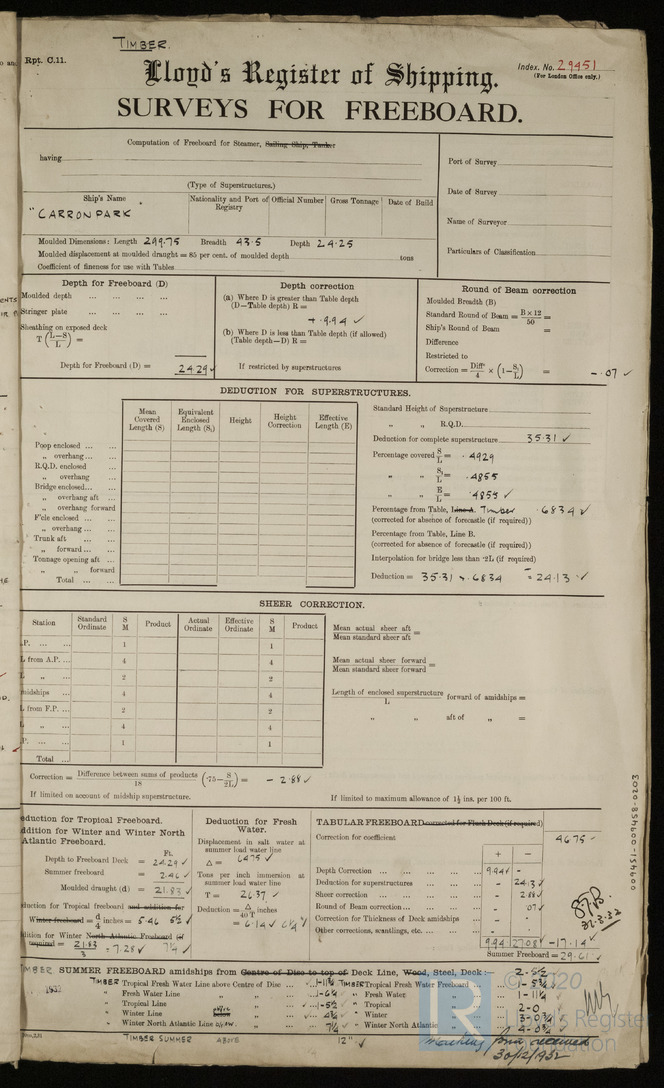 TIMBER
Rpt. C.11.
Index. No. 29451
(For London Office only.)
Lloyd's Register of Shipping.
SURVEYS FOR FREEBOARD.
Computation of Freeboard for Steamer, Sailing Ship, Tanker
having
(Type of Superstructures.)
Port of Survey
Date of Survey
Name of Surveyor
Particulars of Classification
Ship's Name Nationality and Port of Registry Official Number Gross Tonnage Date of Build
"CARRONPARK
Moulded Dimensions: Length 299.75 Breadth 43.5 Depth 24.25
Moulded displacement at moulded draught = 85 per cent. of moulded depth tons
Coefficient of fineness for use with Tables
Depth for Freeboard (D)
Moulded depth ... ... ... ...
Stringer plate ... ... ... ...
Sheathing on exposed deck
T (L-S/L) =
Depth for Freeboard (D) = 24.29 ✓
Depth correction
(a) Where D is greater than Table depth
(D-Table depth) R =
+ 9.94 ✓
(b) Where D is less than Table depth (if allowed)
(Table depth-D) R =
If restricted by superstructures
Round of Beam correction
Moulded Breadth (B)
Standard Round of Beam = B × 12/50 =
Ship's Round of Beam =
Difference
Restricted to
Correction = Diff/4 × (1-S₁/L) = - .07 ✓
DEDUCTION FOR SUPERSTRUCTURES.
Mean Covered Length (S) Equivalent Enclosed Length (S₁) Height Height Correction Effective Length (E)
Poop enclosed ... ...
" overhang ... ...
R.Q.D. enclosed ...
" overhang ...
Bridge enclosed ... ...
" overhang aft ...
" overhang forward
F'cle enclosed ... ...
" overhang ... ...
Trunk aft ... ...
" forward ... ...
Tonnage opening aft ...
" " forward
Total ... ...
Standard Height of Superstructure
" " R.Q.D.
Deduction for complete superstructure 35.31 ✓
Percentage covered S/L = .4929
" " S₁/L = .4855
" " E/L = .4855 ✓
Percentage from Table, Line A. Timber .6834 ✓
(corrected for absence of forecastle (if required))
Percentage from Table, Line B.
(corrected for absence of forecastle (if required))
Interpolation for bridge less than ·2L (if required)
Deduction = 35.31 × .6834 = -24.13 ✓
SHEER CORRECTION.
Station Standard Ordinate S M Product Actual Ordinate Effective Ordinate S M Product
.P. ... ... 1 1
L from A.P. ... 4 4
L " ... 2 2
midships ... 4 4
L from F.P. ... 2 2
L " ... 4 4
P. ... ... 1 1
Total ...
Mean actual sheer aft / Mean standard sheer aft =
Mean actual sheer forward / Mean standard sheer forward =
Length of enclosed superstructure / L forward of amidships =
" " aft of " =
Correction = Difference between sums of products / 18 (·75 - S/2L) = - 2.88 ✓
If limited on account of midship superstructure.
If limited to maximum allowance of 1½ ins. per 100 ft.
009451-009458-0203
eduction for Tropical Freeboard.
ddition for Winter and Winter North
Atlantic Freeboard.
Ft.
Depth to Freeboard Deck = 24.29 ✓
Summer freeboard = 2.46 ✓
Moulded draught (d) = 21.83 ✓
eduction for Tropical freeboard and addition for
Winter freeboard = d/4 inches = 5.46 5½ ✓
ddition for Winter North Atlantic Freeboard (if
required) = 21.83/3 = 7.28 ✓ 7¼ ✓
Deduction for Fresh Water.
Displacement in salt water at
summer load water line
Δ = 6475 ✓
Tons per inch immersion at
summer load water line
T = 26.37 ✓
Deduction = Δ/40 T inches
= 6.14 ✓ 6¼ ✓
TABULAR FREEBOARD corrected for Flush Deck (if required)
Correction for coefficient 46.75 ✓
+ -
Depth Correction ... ... ... 9.94 ✓ -
Deduction for superstructures ... ... - 24.13 ✓
Sheer correction ... ... ... - 2.88 ✓
Round of Beam correction ... ... - .07 ✓
Correction for Thickness of Deck amidships - -
Other corrections, scantlings, etc. ... ... - -
9.94 27.08 ✓ -17.14 ✓
Summer Freeboard = 29.61 ✓
TIMBER SUMMER FREEBOARD amidships from Centre of Disc to top of Deck Line, Wood, Steel, Deck: 2-5½
TIMBER Tropical Fresh Water Line above Centre of Disc ... 1-11¾ TIMBER Tropical Fresh Water Freeboard 1-5¾
" Fresh Water Line " " ... 1-6¼ " Fresh Water " 1-11¼
" Tropical Line " " ... 1-5½ " Tropical " 2-0
" Winter Line ... 4¾ " Winter " 3-0¾
" Winter North Atlantic Line ... 7¼ " Winter North Atlantic " 4-0¾
TIMBER SUMMER ABOVE 12" ✓
Marking form received
30/12/1932
© 2020
LR
Lloyd's Register
Foundation